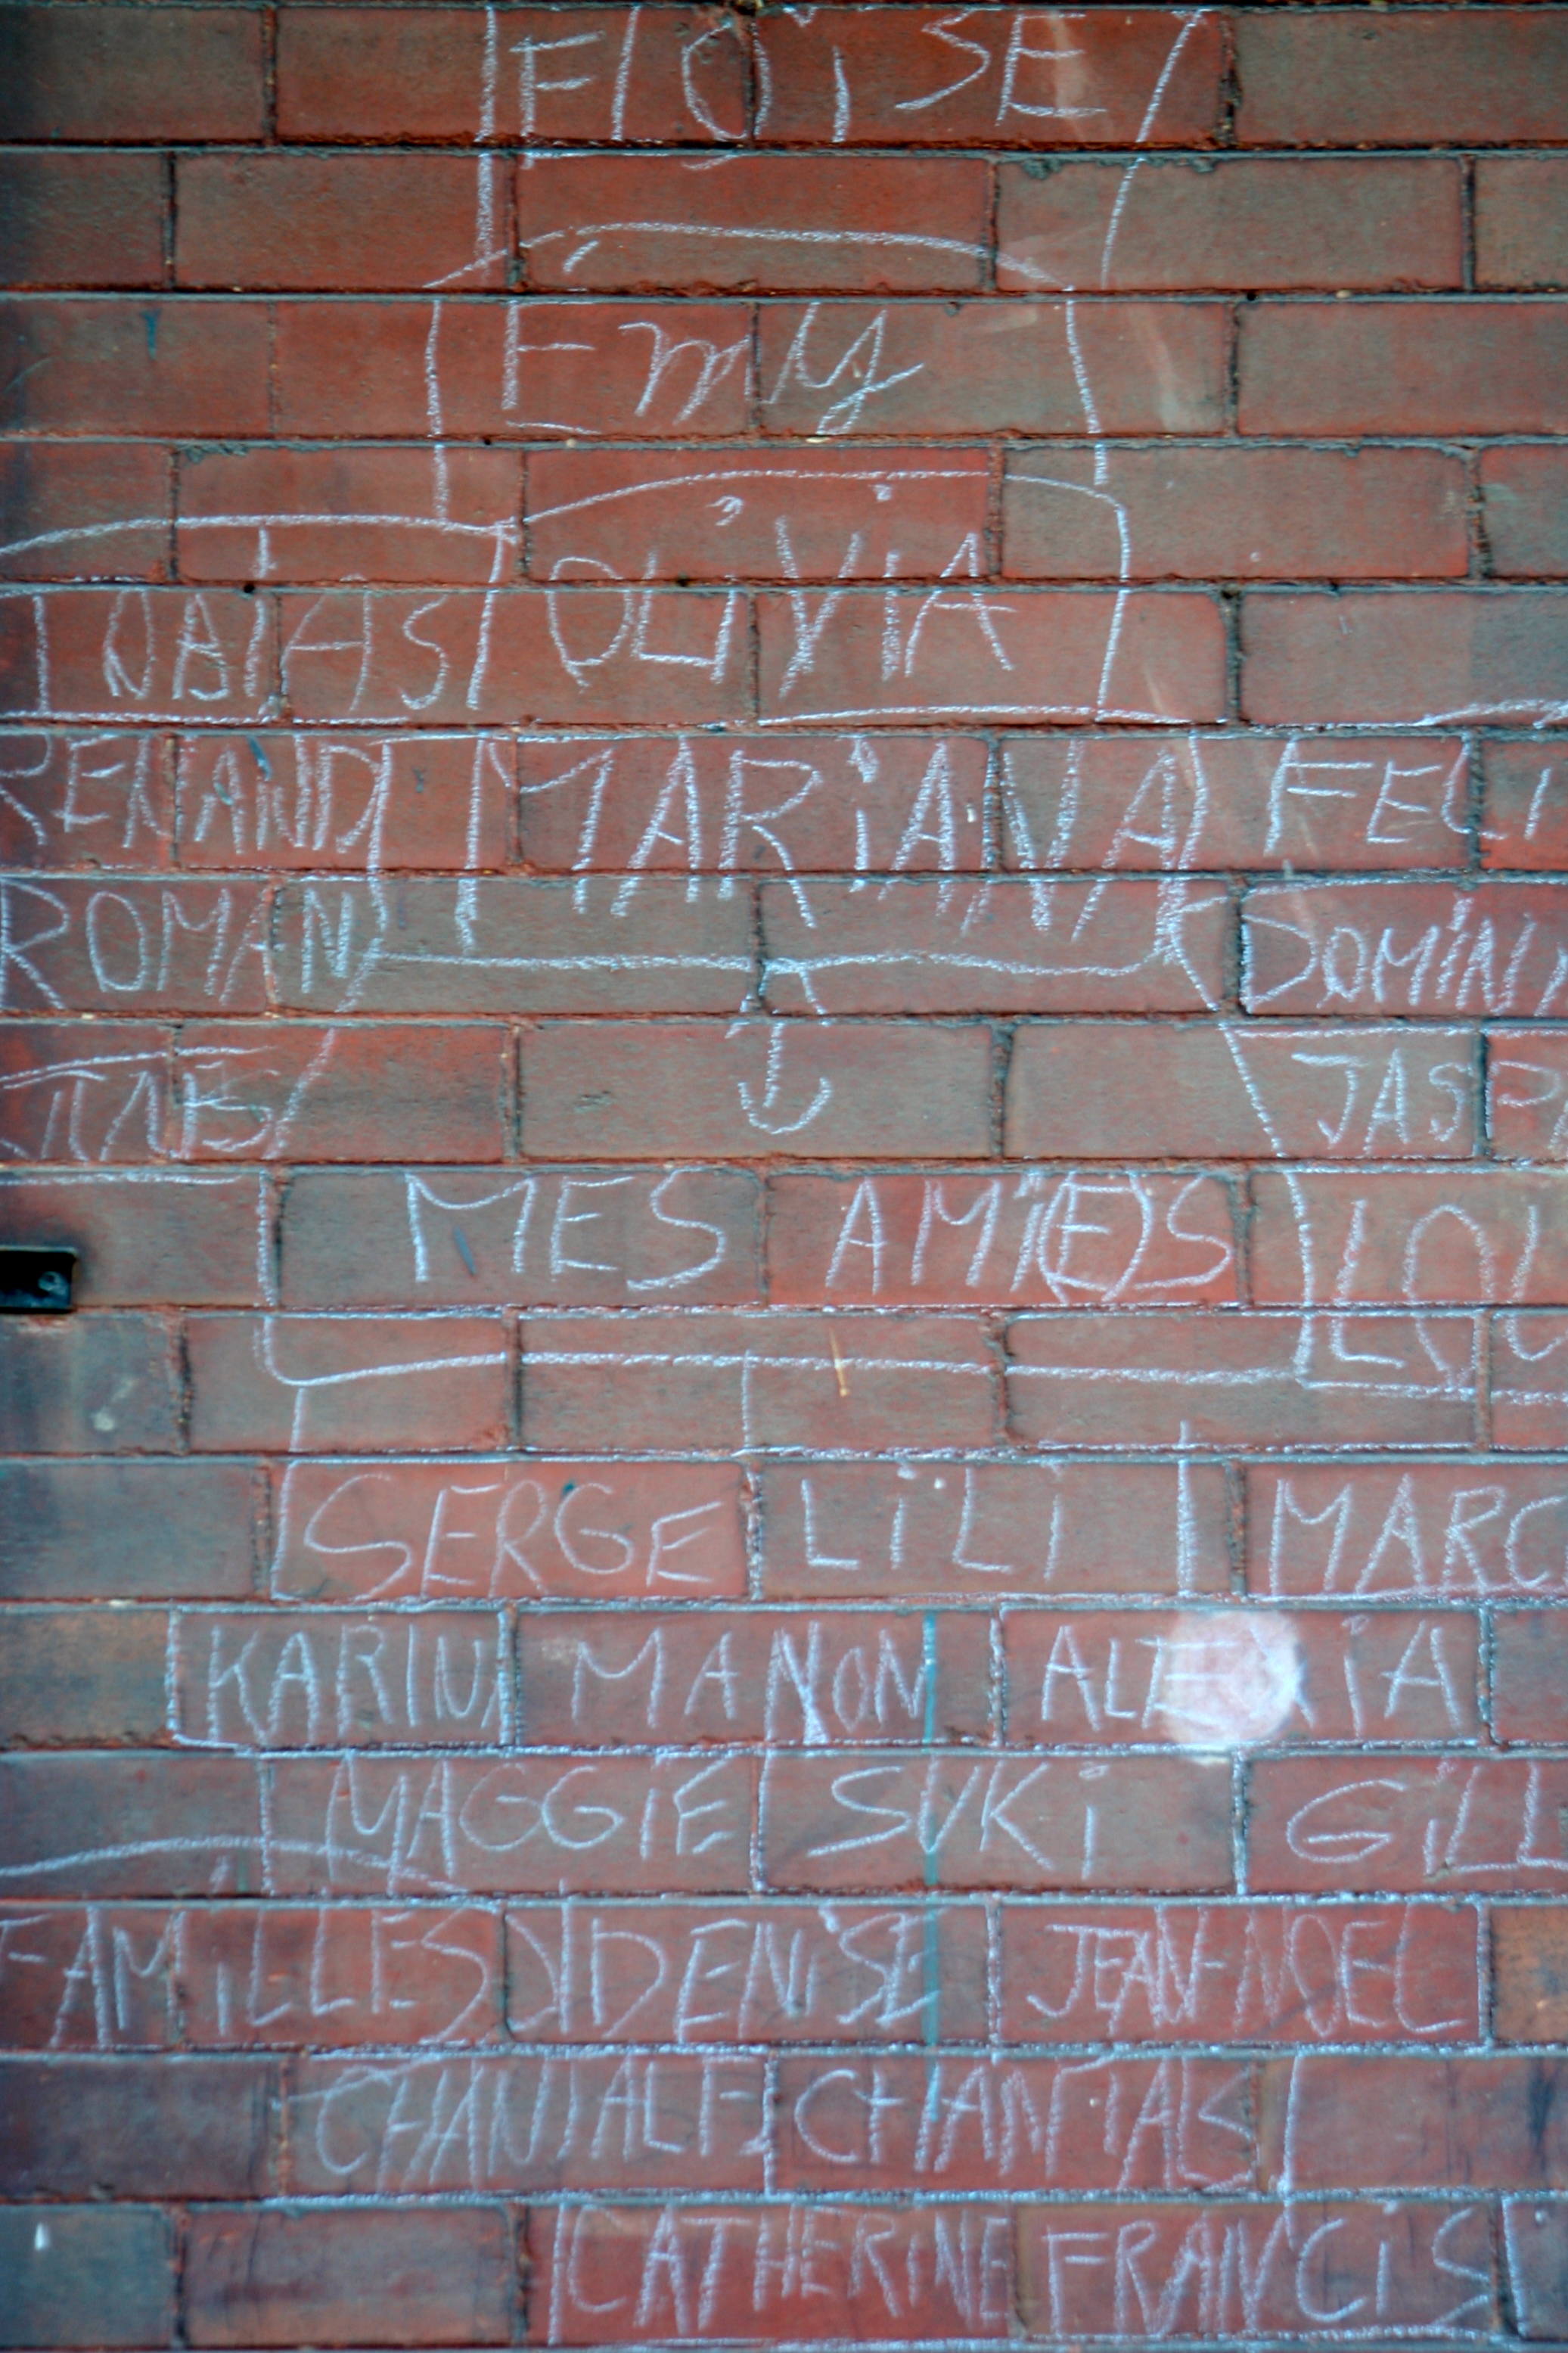 ElOiSE
Emy
OLiViA
TOBIAS
RENAND MARiANA FELI
ROMAN DOMINI
JASP
MES AMI(E)S LOU
SERGE LiLi MARC
KARINA MANON ALEXiA
MAGGIE SUKi GILL
FAMILLES DENiSE JEAN-NOEL
CHANTALE CHANTAL
CATHERINE FRANCIS